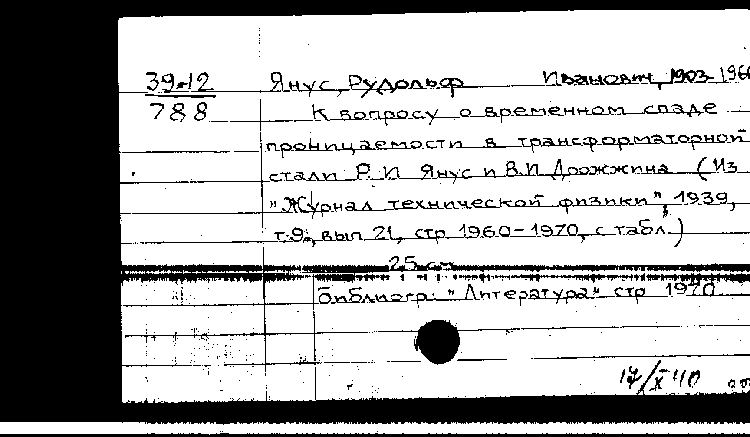 39-12
788
Янус, Рудольф Иванович, 1903-196
К вопросу о временном спаде
проницаемости в трансформаторной
стали Р. И. Янус и В.И Дрожжина (Из
"Журнал технической физики", 1939,
т.9, вып 21, стр 1960-1970, с табл.)
25 см
библиогр: "Литература" стр 1970
17/X 40